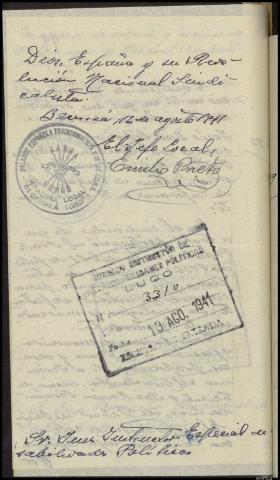 Dios, España y su Revo-
lución Nacional Sindi-
calista.
Becerreá 12 agosto 1941
El Jefe Local,
Emilio Prieto
FALANGE ESPAÑOLA TRADICIONALISTA
JEFATURA LOCAL
BECERREÁ (LUGO)
JUZGADO INSTRUCTOR DE
RESPONSABILIDADES POLÍTICAS
LUGO
3310
Fecha 13 AGO. 1941
ENTRADA
Sr. Juez Instructor Especial de
sabilidades Políticas